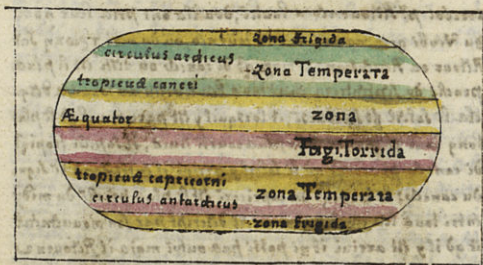 zona frigida
circulus arcticus
zona Temperata
tropicus cancri
Æquator zona
Torrida
tropicus capricorni
zona Temperata
circulus antarcticus
zona frigida